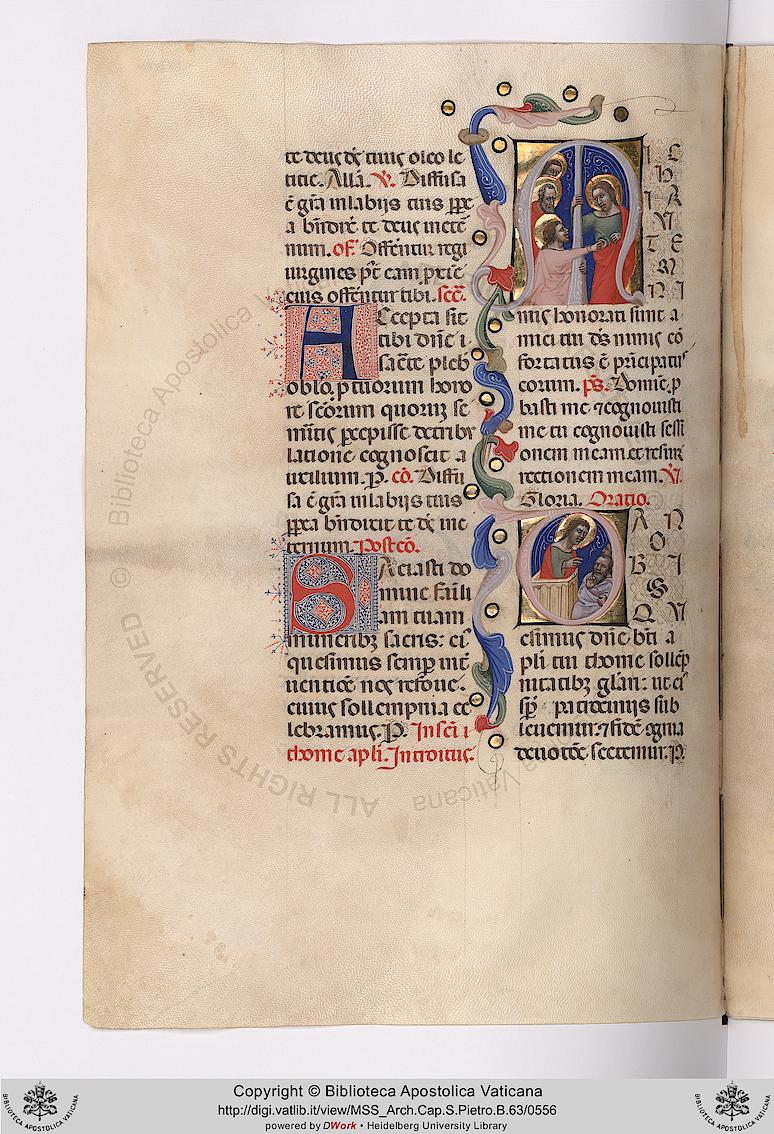 te deus ds̄ tuus oleo le
titie. Allā. V̄. Diffusa
ē grā in labijs tuis ppe
a bn̄dix̄ te deus in ete
num. of. Offerentur regi
uirgines p̄t eam proxīe
eius offērūtur tibi. sec̄.
Accepta sit
tibi dn̄e i
sacr̄e pleb̄
oblo. p tuorum hono
re sc̄orum quorum se
meritis percepisse de tribu
latione cognoscit a
uxilium. P. cō. Diffu
sa ē grā in labijs tuis
pptea bn̄dixit te ds̄ in e
ternum. Postcō.
Saciasti do
mine famili
am tuam
muneribȝ sacris: eī
quesumus semp inte
uentiōe nos refoue.
cuius sollempnia ce
lebramus. P. In scī i
thome apl̄i. Introitus.
MICHI
AVTE
M NI
mis honorati sunt a
mici tui ds̄ nimis cō
fortatus ē principatus
eorum. ps̄. Domine p
basti me ⁊ cognouisti
me tu cognouisti sessi
onem meam et resur
rectionem meam. V̄.
Gloria. Oratio.
DA N
O
B I
S
Q N
esumus dn̄e bt̄i a
pl̄i tui thome sollēp
nitatibȝ glāri: ut eī
sp̄ patrocinijs sub
leuemur: ⁊ fidē ogrua
deuotōe sectemur. P.
© Biblioteca Apostolica Vaticana
ALL RIGHTS RESERVED
Copyright © Biblioteca Apostolica Vaticana
http://digi.vatlib.it/view/MSS_Arch.Cap.S.Pietro.B.63/0556
powered by DWork • Heidelberg University Library
BIBLIOTECA APOSTOLICA VATICANA
BIBLIOTECA APOSTOLICA VATICANA